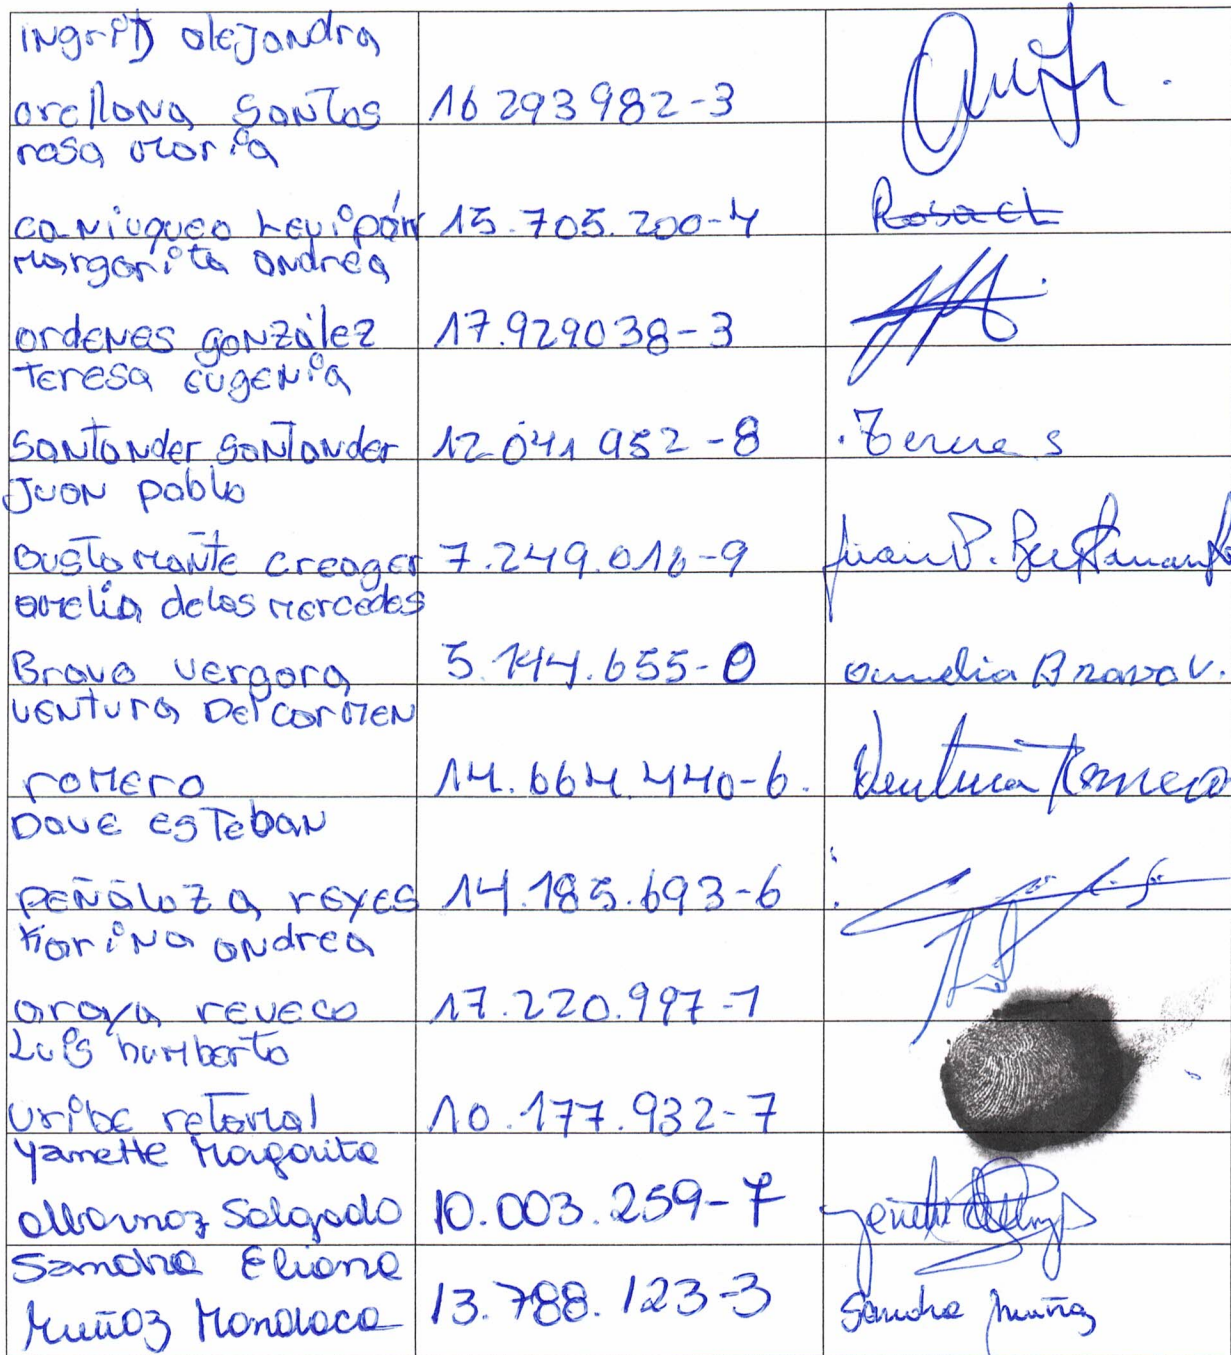 INgriD alejandra
orellana Santos 16 293 982-3
rosa maria
caniuqueo Levipán 15.705.200-4 Rosa CL
Margarita andrea
ordenes gonzález 17.929038-3
Teresa eugenia
Santander Santander 12.041 952-8 S
Juan pablo
Bustamante creager 7.249.016-9 Juan P. Bustamante
amelia delas mercedes
Bravo vergara 5.144.655-0 amelia Bravo V.
ventura Del carmen
romero 14.664.440-6. Ventura Romero
Dave esTeban
PEÑaloza reyes 14.185.693-6
Karina andrea
araya reveco 17.220.997-1
Luis humberto
uribe retamal 10.177.932-7
Yanette Margarita
Albornoz Salgado 10.003.259-7
Sandra Eliana
Muñoz Mondaca 13.788.123-3 Sandra Muñoz